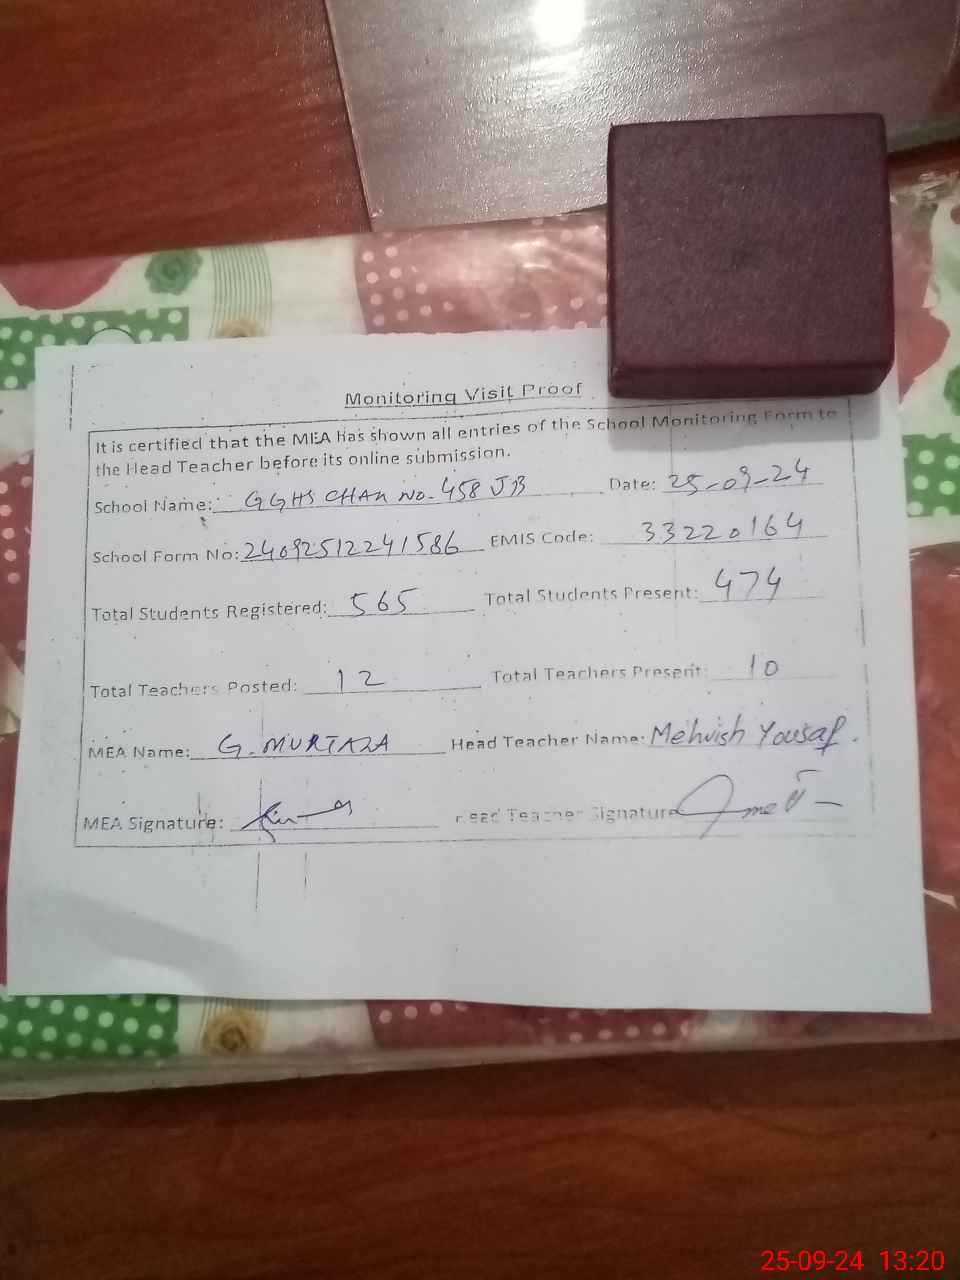 Monitoring Visit Proof
It is certified that the MEA has shown all entries of the School Monitoring Form to
the Head Teacher before its online submission.
School Name: GGHS CHAK NO. 458 JB Date: 25-09-24
School Form No: 24092512241586 EMIS Code: 33220164
Total Students Registered: 565 Total Students Present: 474
Total Teachers Posted: 12 Total Teachers Present: 10
MEA Name: G. MURTAZA Head Teacher Name: Mehvish Yousaf.
MEA Signature: Head Teacher Signature
25-09-24 13:20